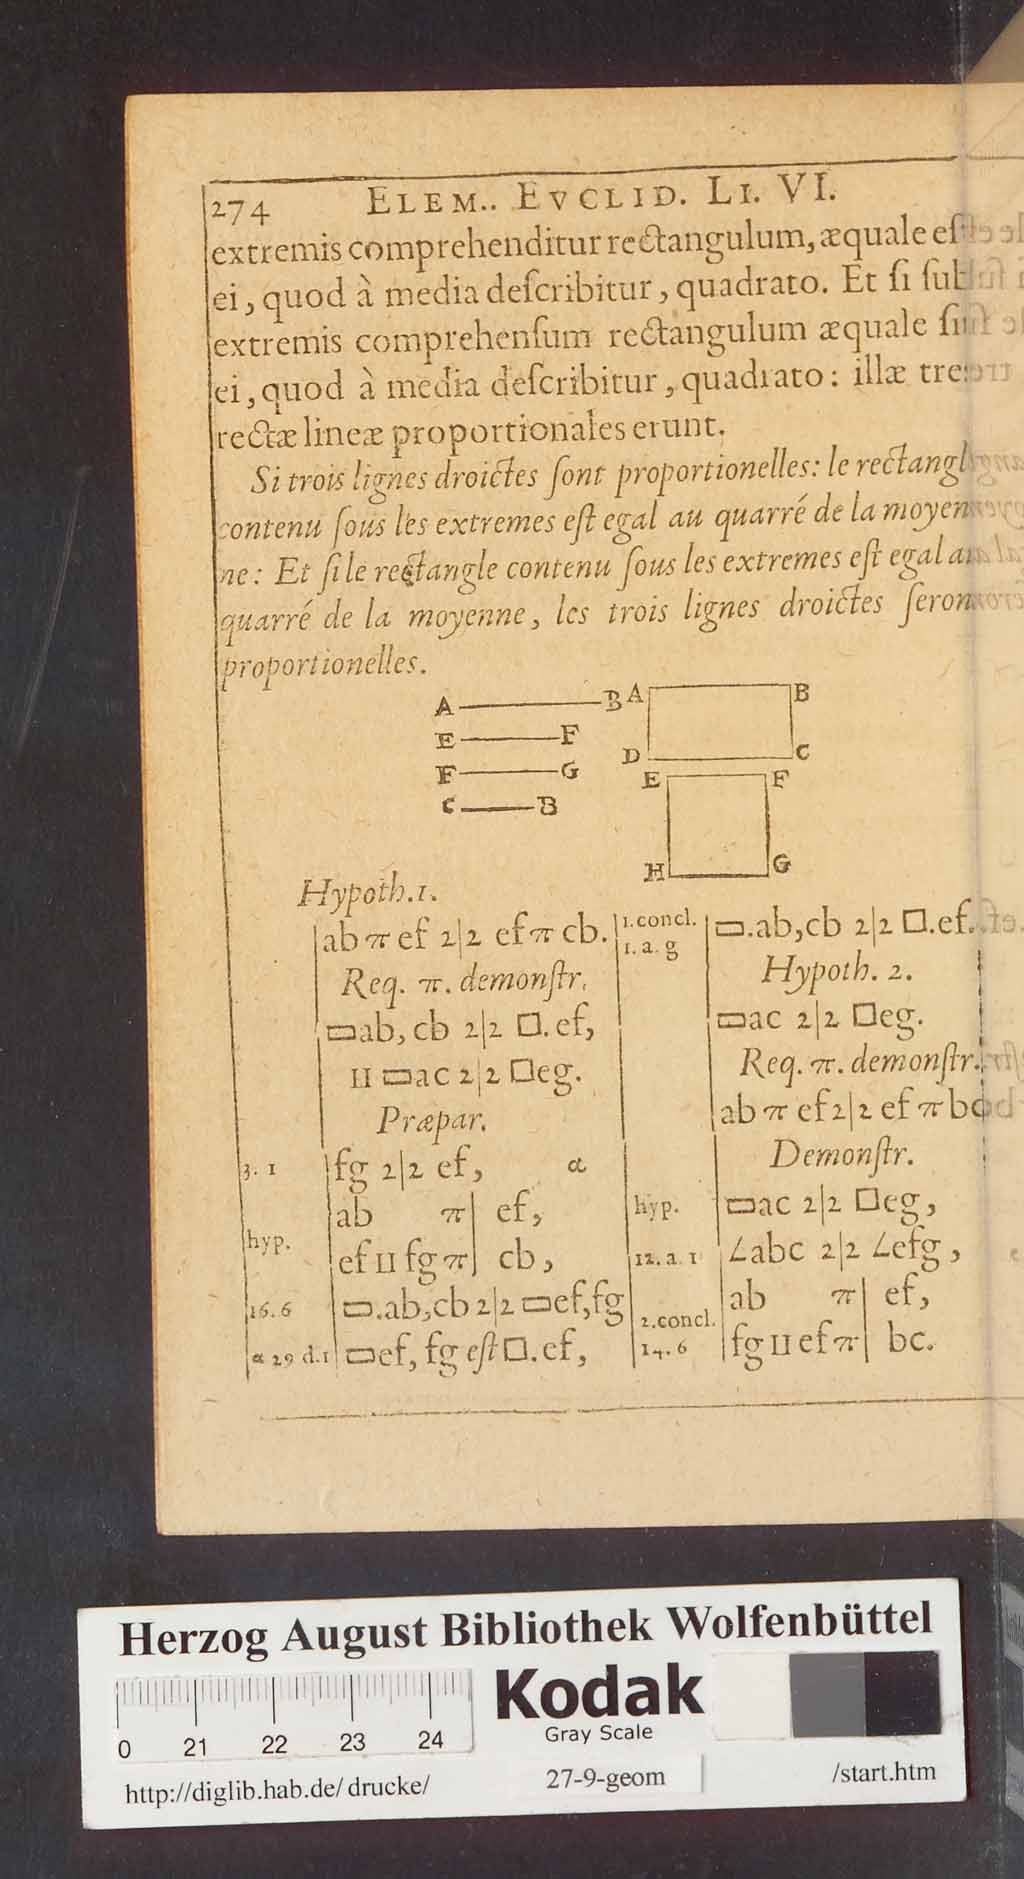 274 ELEM.. EVCLID. LI. VI.
extremis comprehenditur rectangulum, æquale eſt
ei, quod à media deſcribitur, quadrato. Et ſi ſub
extremis comprehenſum rectangulum æquale ſit
ei, quod à media deſcribitur, quadrato: illæ tres
rectæ lineæ proportionales erunt.
Si trois lignes droictes ſont proportionelles: le rectangl
contenu ſous les extremes eſt egal au quarré de la moyen
ne: Et ſi le rectangle contenu ſous les extremes eſt egal au
quarré de la moyenne, les trois lignes droictes ſeron
proportionelles.
A B
E F
F G
C B
A B
D C
E F
H G
Hypoth.1.
ab π ef 2|2 ef π cb.
Req. π. demonſtr.
▭ab, cb 2|2 □.ef,
II ▭ac 2|2 □eg.
Præpar.
3. 1 fg 2|2 ef, α
hyp. ab π| ef,
ef II fg π| cb,
16.6 ▭.ab,cb 2|2 ▭ef,fg
α 29 d.1 ▭ef, fg eſt □.ef,
1.concl. ▭.ab,cb 2|2 □.ef.
1. a. g
Hypoth. 2.
▭ac 2|2 □eg.
Req. π. demonſtr.
ab π ef 2|2 ef π bc
Demonſtr.
hyp. ▭ac 2|2 □eg,
12. a. 1 ∠abc 2|2 ∠efg,
ab π| ef,
2.concl.
14. 6 fg II ef π| bc.
Herzog August Bibliothek Wolfenbüttel
Kodak
Gray Scale
0 21 22 23 24
http://diglib.hab.de/drucke/ 27-9-geom /start.htm